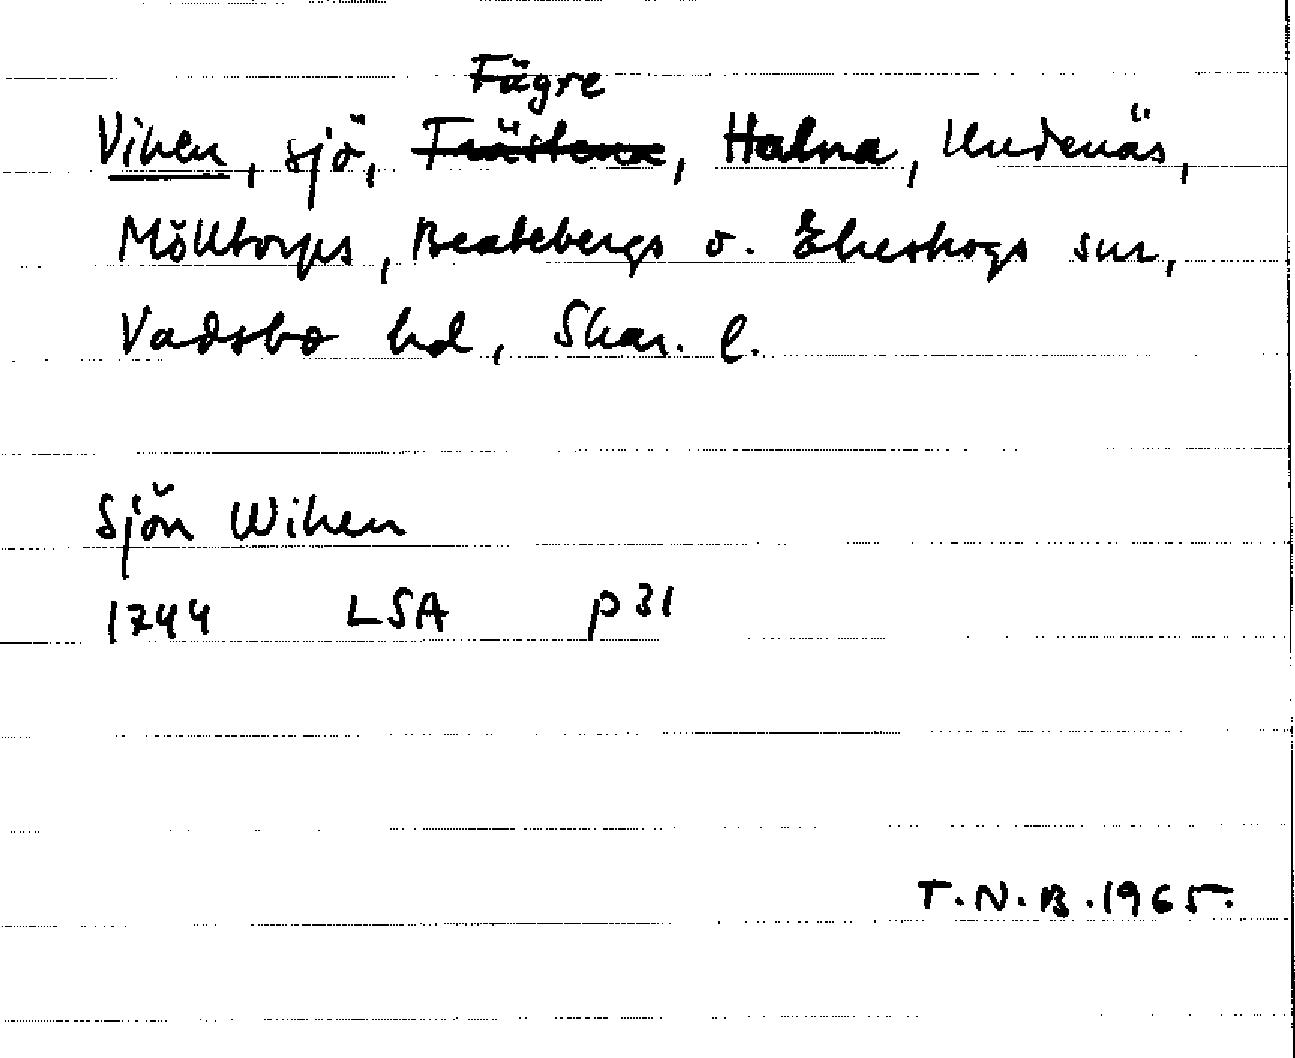 Fägre
Viken, sjö, Trästena, Halna, Undenäs,
Mölltorps, Beatebergs o. Ekeskogs snr,
Vadsbo hd, Skar. l.
Sjön Wiken
1744 LSA p 31
T.N.B. 1965.